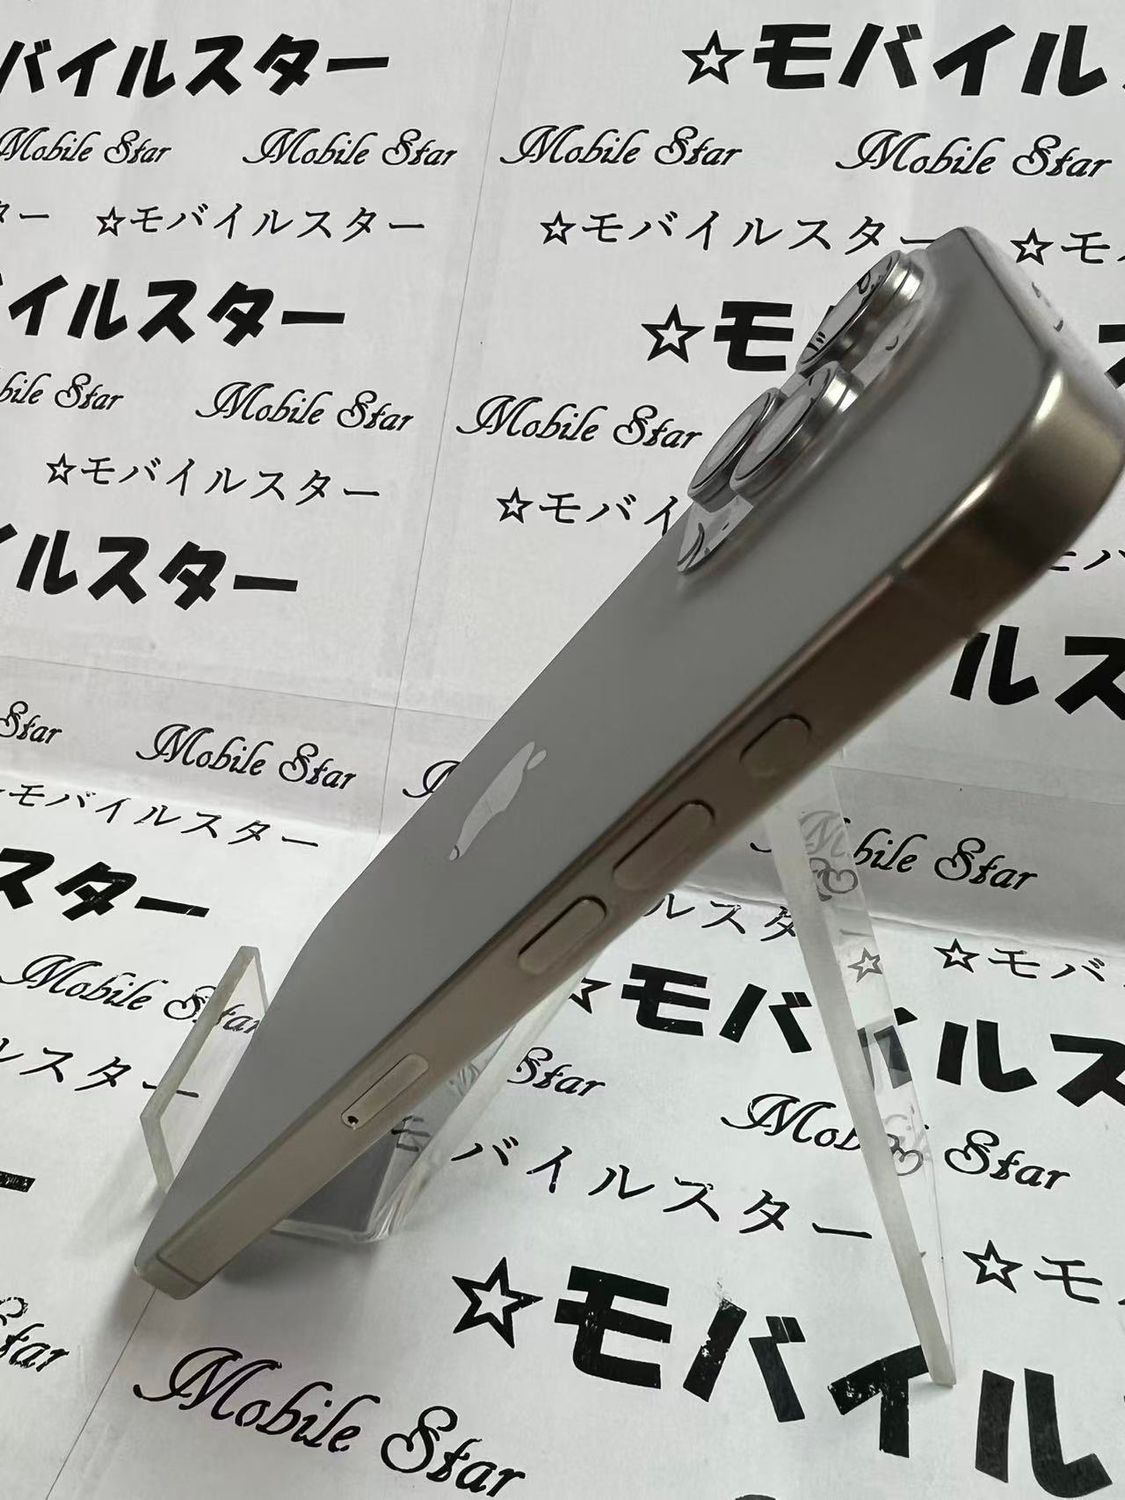 バイルスター ☆モバイル
Mobile Star Mobile Star Mobile Star Mobile Star
ター ☆モバイルスター ☆モバイルスター ☆モ
イルスター ☆モ
bile Star Mobile Star Mobile Star
☆モバイルスター ☆モバイ
イルスター モバ
ルス
Star Mobile Star
モバイルスター Mobile Star
スター ルスタ ☆モバ
Mobile Star ☆モバイルス
ルスター Star Mobile Star
バイルスター ☆モ
☆モバイル
tar Mobile Star